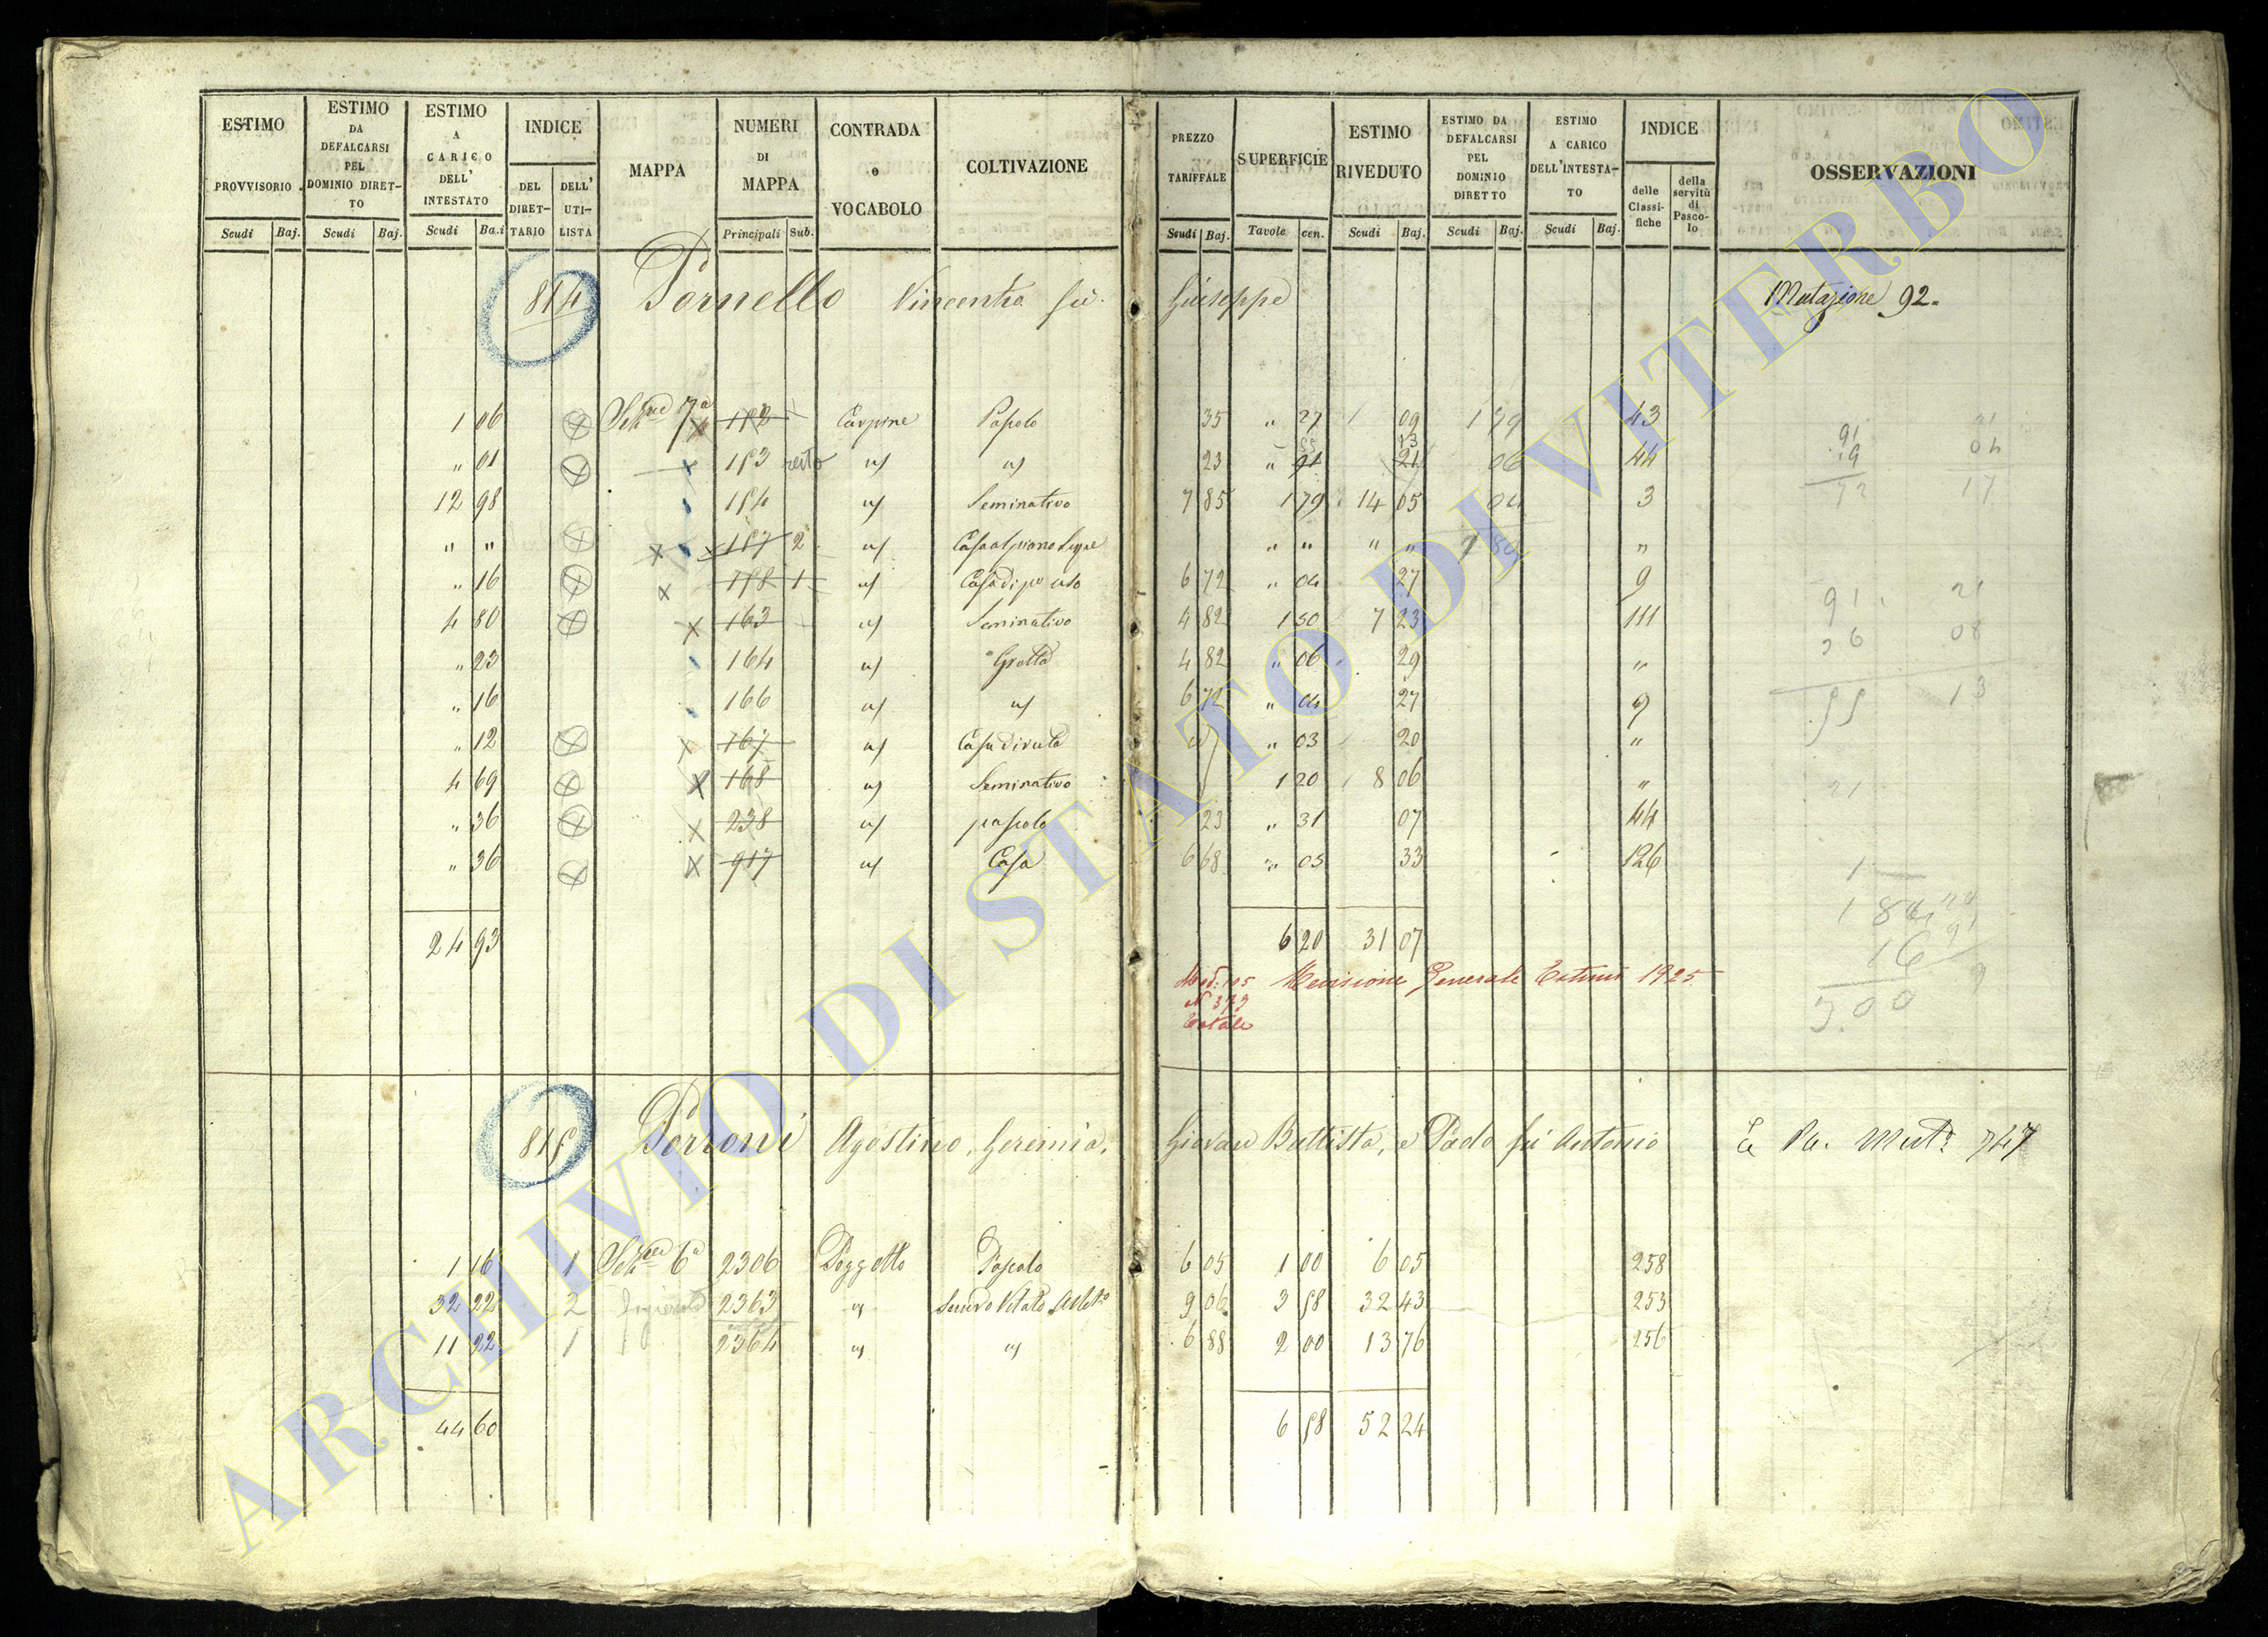 ESTIMO PROVVISORIO
Scudi Baj.
ESTIMO DA DEFALCARSI PEL DOMINIO DIRETTO
Scudi Baj.
ESTIMO A CARICO DELL' INTESTATO
Scudi Ba.i
INDICE
DEL DIRETTARIO
DELL' UTILISTA
MAPPA
NUMERI DI MAPPA
Principali Sub.
CONTRADA o VOCABOLO
COLTIVAZIONE
PREZZO TARIFFALE
Scudi Baj.
SUPERFICIE
Tavole cen.
ESTIMO RIVEDUTO
Scudi Baj.
ESTIMO DA DEFALCARSI PEL DOMINIO DIRETTO
Scudi Baj.
ESTIMO A CARICO DELL'INTESTATO
Scudi Baj.
INDICE
delle Classifiche
della servitù di Pascolo
OSSERVAZIONI
814 Pornello Vincenzo fù Giuseppe Mutazione 92.
1 06 7a Carpine Pascolo 35 " 27 1 09 43
" 01 153 resto 23 " 91 21 44
12 98 154 Seminativo 7 85 1 79 14 05 3
" " 157 2 " " " " "
" 16 158 1 6 72 " 04 27 9
4 80 163 Seminativo 4 82 1 50 7 23 111
" 23 164 Grotta 4 82 " 06 29 "
" 16 166 6 72 " 04 27 9
" 12 167 Casa diruta " 03 20 "
4 69 168 Seminativo 1 20 8 06 "
" 36 238 pascolo 23 " 31 07 44
" 36 917 Casa 6 68 " 05 33 126
24 93 6 20 31 07
Mod: 105 Revisione Generale Estimi 1925
N 379
Totale
815 Porroni Agostino, Geremia, Giovan Battista, e Paolo fù Antonio 747
1 16 1 6a 2306 Poggetto Pascolo 6 05 1 00 6 05 258
32 22 2 2363 9 06 3 58 32 43 253
11 22 1 2364 6 88 2 00 13 76 256
44 60 6 58 52 24
ARCHIVIO DI STATO DI VITERBO